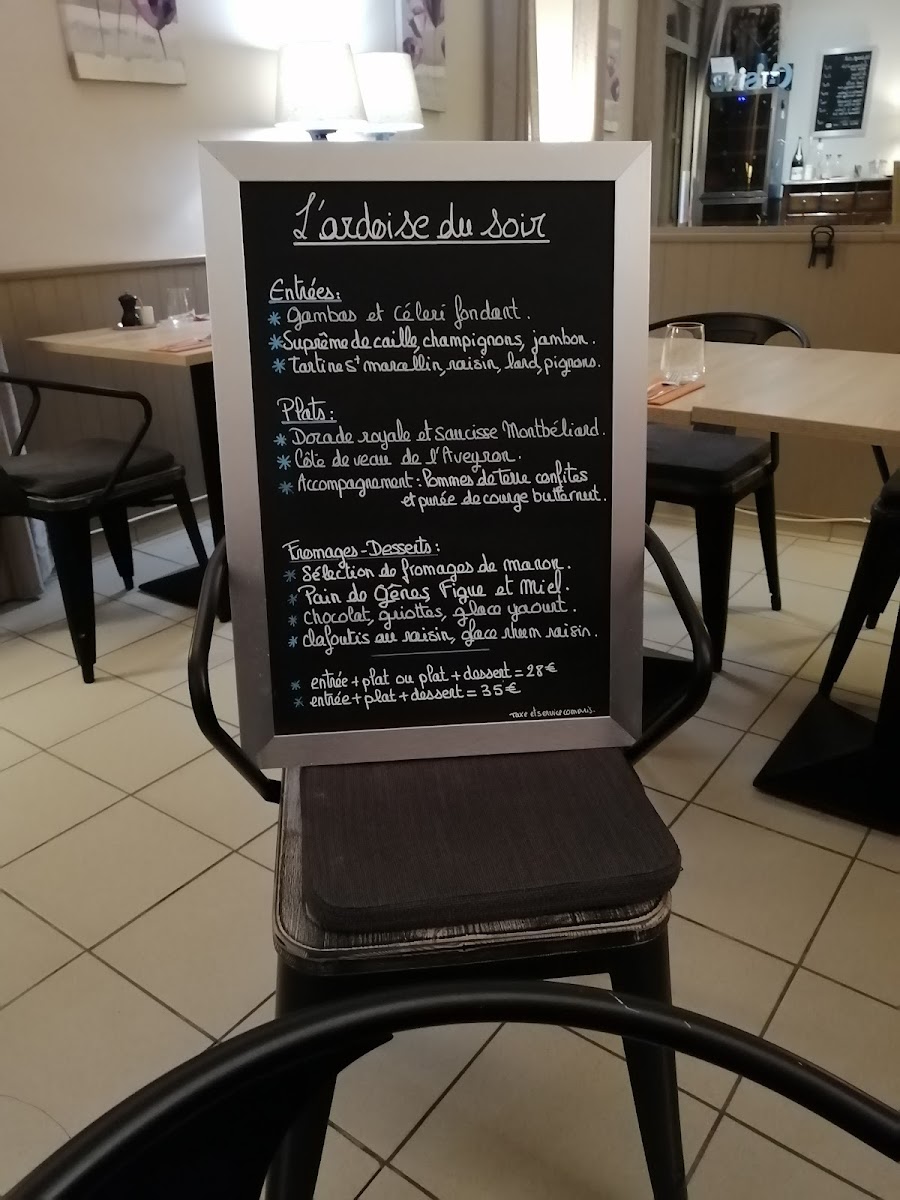 L'ardoise du soir
Entrées:
* Gambas et Céleri fondant.
* Suprême de caille, champignons, jambon.
* Tartine St marcellin, raisin, lard, pignons.
Plats:
* Dorade royale et saucisse Montbéliard.
* Côte de veau de l'Aveyron.
* Accompagnement: Pommes de terre confites
et purée de courge butternut.
Fromages-Desserts:
* Sélection de fromages de manon.
* Pain de Gênes Figue et Miel.
* Chocolat, griottes, glace yaourt.
* clafoutis au raisin, glace rhum raisin.
* entrée + plat ou plat + dessert = 28€
* entrée + plat + dessert = 35€
Taxe et service compris.